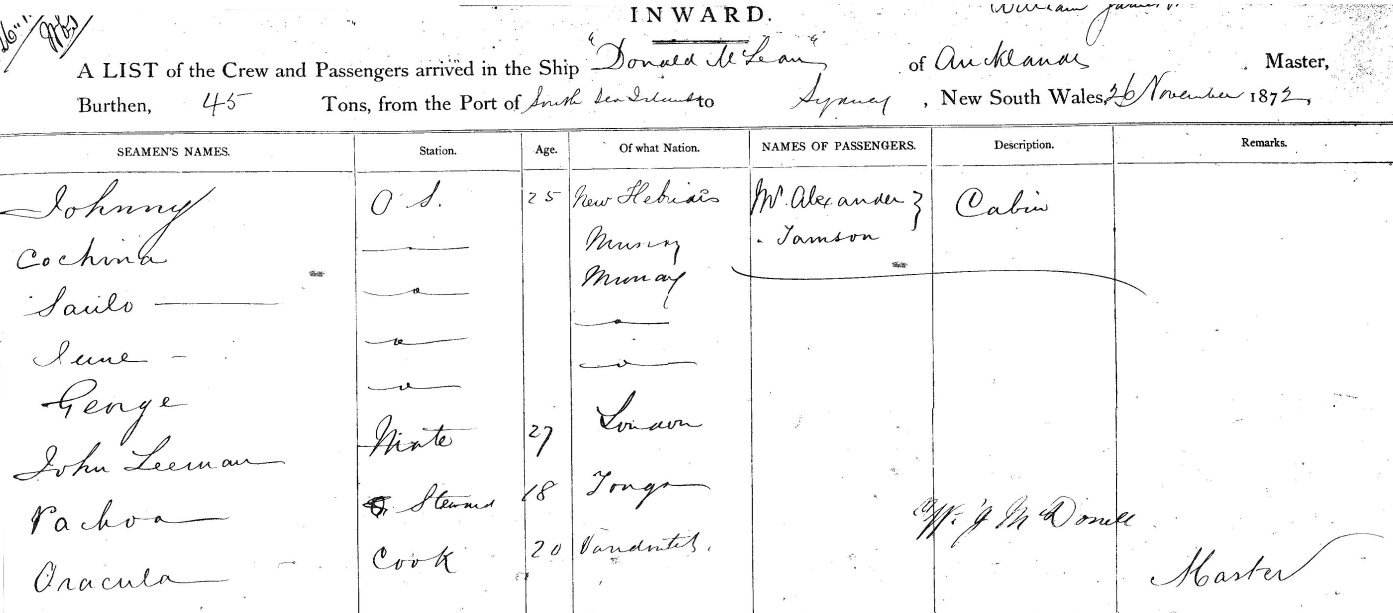 INWARD.
William James
A LIST of the Crew and Passengers arrived in the Ship "Donald McLean" of Aucklands Master,
Burthen, 45 Tons, from the Port of South Sea Islands to Sydney, New South Wales, 26 November 1872,
SEAMEN'S NAMES. Station. Age. Of what Nation. NAMES OF PASSENGERS. Description. Remarks.
Johnny O S. 25 New Hebrides Mr. Alexander } Cabin
Cochina Murray " Jamson
Saulo — " — Murray
June — " — — " —
George — " — — " —
John Leeman Mate 27 London
Pachoa Steward 18 Tonga
Oracula Cook 20
W. J McDonell
Master